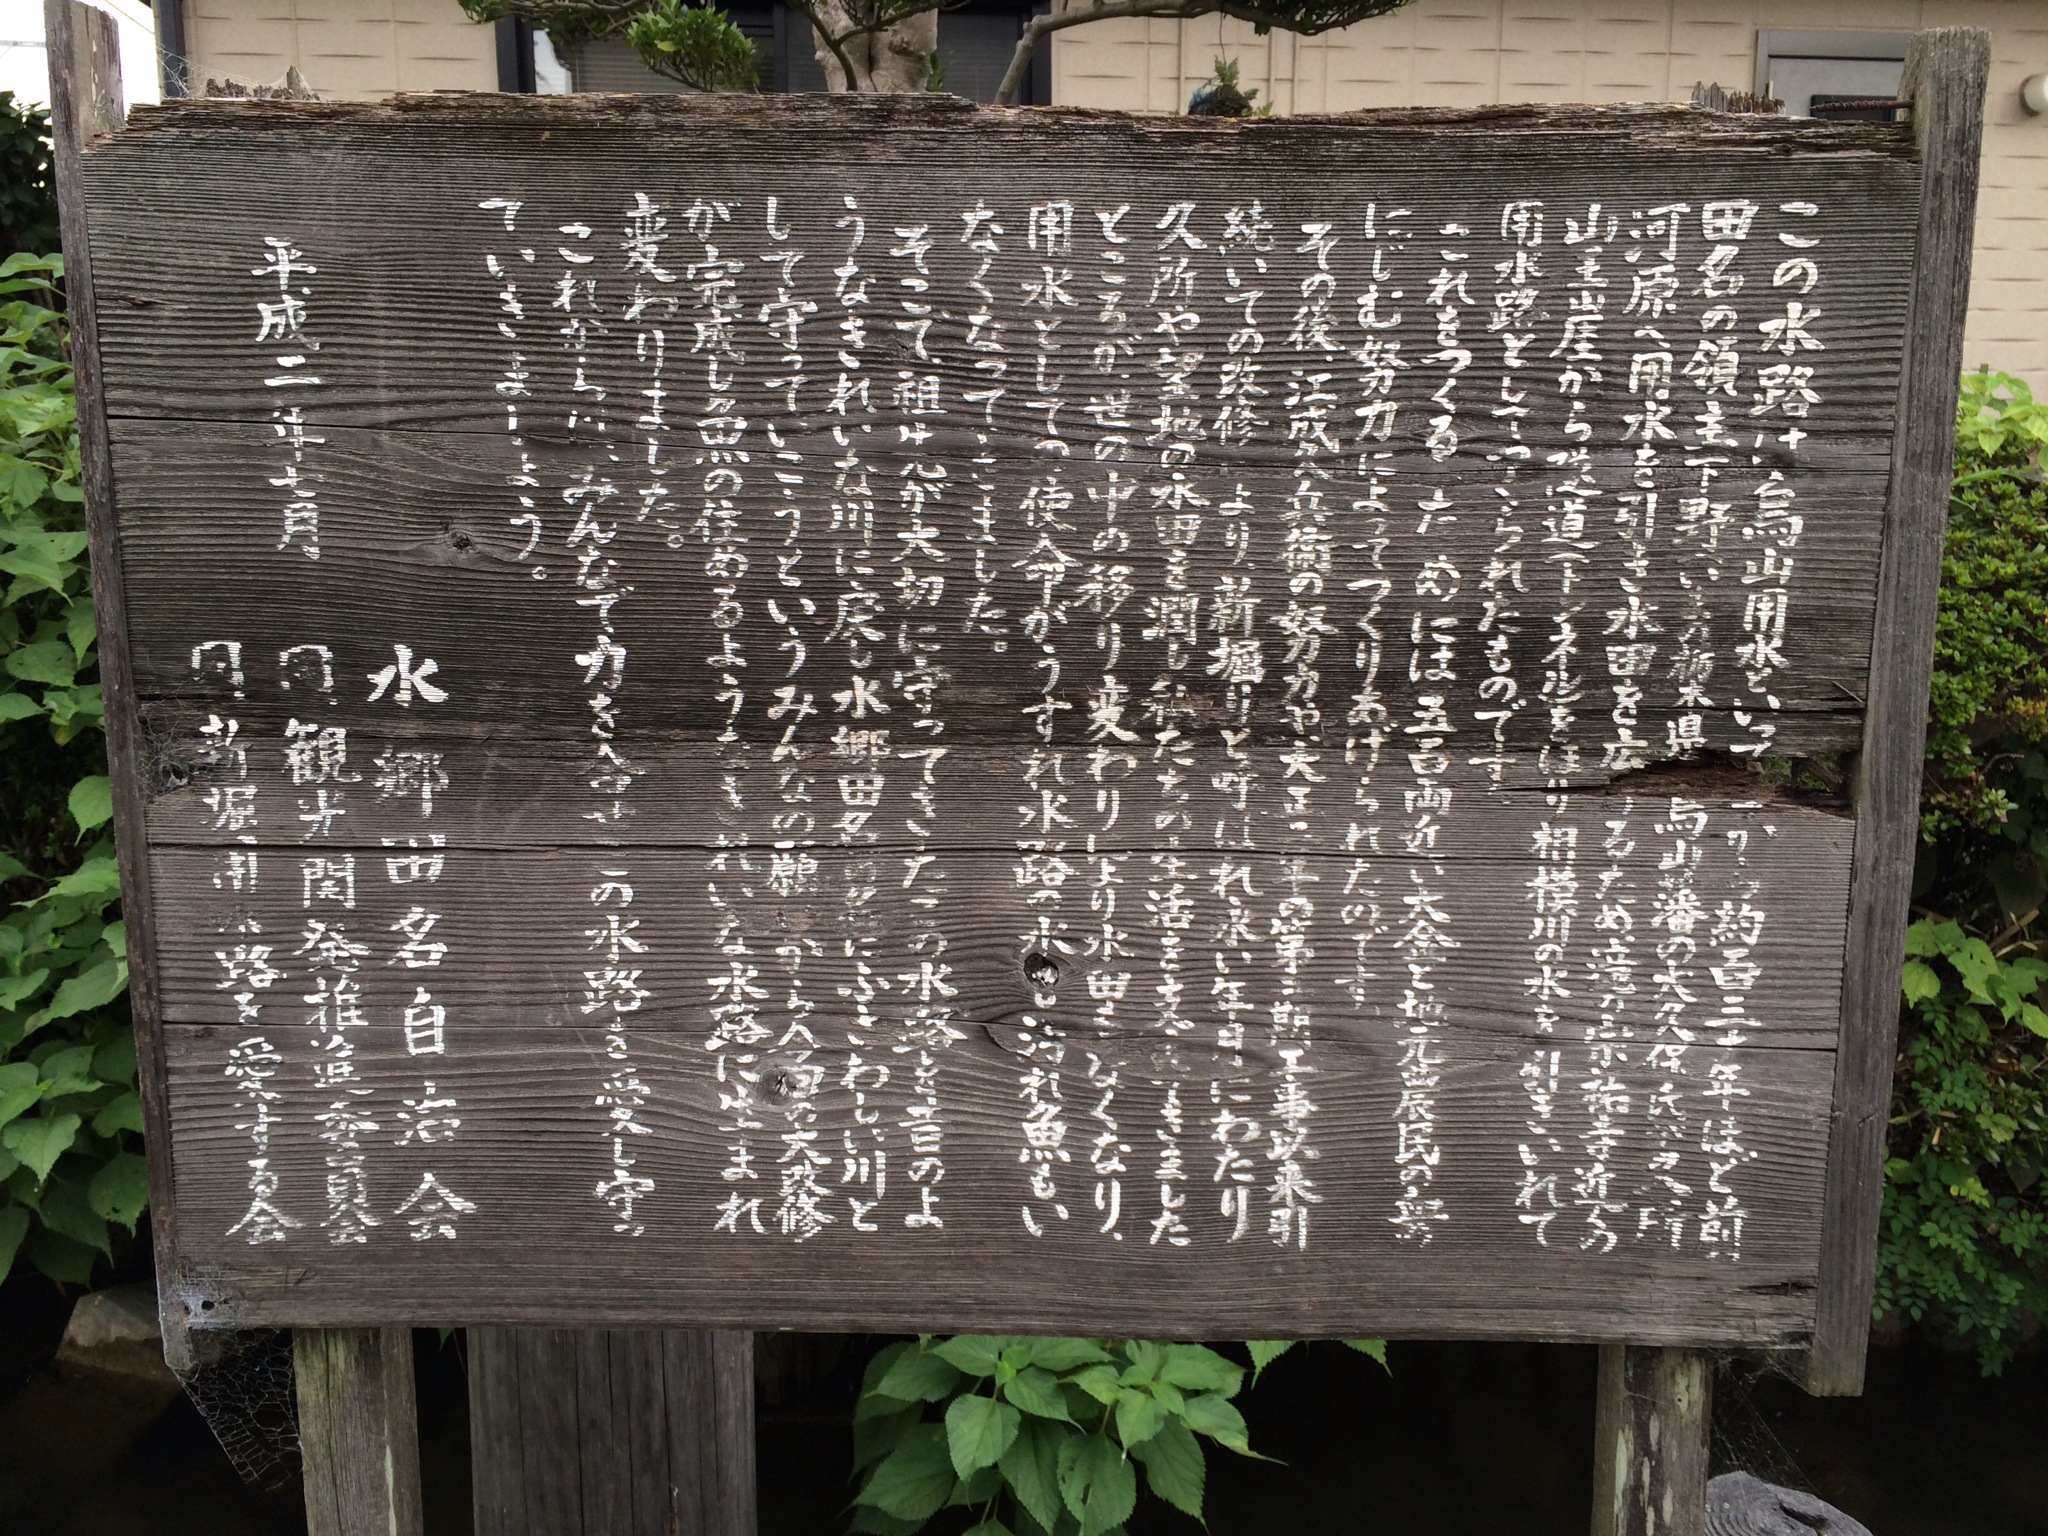 この水路は烏山用水といって 今から約百三十年ほど前
田名の領主下野(いま栃木県)烏山藩の大久保氏が久所
河原へ用水を引き水田を広げるため、滝の宗祐寺近の
山王崖から隧道(トンネル)をほり相模川の水を引きいれて
用水路としてつくられたものです。
これをつくるためには五百両近い大金と地元農民の血の
にじむ努力によってつくりあげられたのです。
その後、江成久兵衛の努力や、大正二年の第二期工事以来引
続いての改修により、新堀りと呼ばれ永い年月にわたり
久所や望地の水田を潤し私たちの生活をささえてきました
ところが、世の中の移り変わりにより水田もなくなり、
用水としての使命がうすれ水路の水も汚れ魚もい
なくなってきました。
そこで、祖先が大切に守ってきたこの水路を昔のよ
うなきれいな川に戻し水郷田名の名にふさわしい川と
して守っていこうというみんなの願いから今回の大改修
が完成し魚の住めるようなきれいな水路に生まれ
変わりました。
これからは、みんなで力を合せこの水路を愛し守っ
ていきましょう。
平成二年七月
水郷田名自治会
同 観光開発推進委員会
同 新堀用水路を愛する会